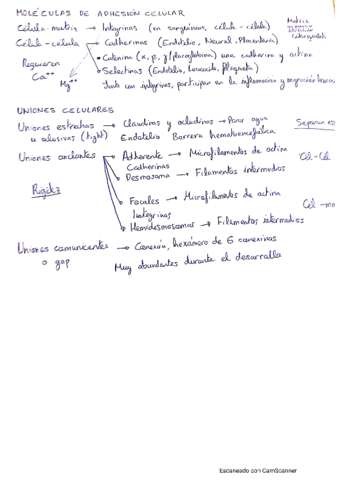 MOLÉCULAS DE ADHESIÓN CELULAR
Célula-matriz → Integrinas (en sanguíneos, célula-célula)
Célula-célula → Cadherinas (Endotelio, Neural, Placentaria)
Requieren Ca++ Mg++
• Catenina (α, β, γ/placoglobina) une cadherina y actina.
• Selectinas (Endotelio, Leucocito, plaqueta)
Junto con integrinas, participan en la inflamación y migración
UNIONES CELULARES
Uniones estrechas → Claudinas y ocludinas → Poro agua
u oclusivas (tight) Endotelio Barrera hematoencefálica
Separan
Uniones anclantes → Adherente → Microfilamentos de actina
Cadherinas
Cel-Cel
Desmosoma → Filamentos intermedios
Rigidez
Focales → Microfilamentos de actina
Integrinas
Cel
Hemidesmosomas → Filamentos intermedios
Uniones comunicantes → Conexón, hexámero de 6 conexinas
o gap
Muy abundantes durante el desarrollo
Escaneado con CamScanner